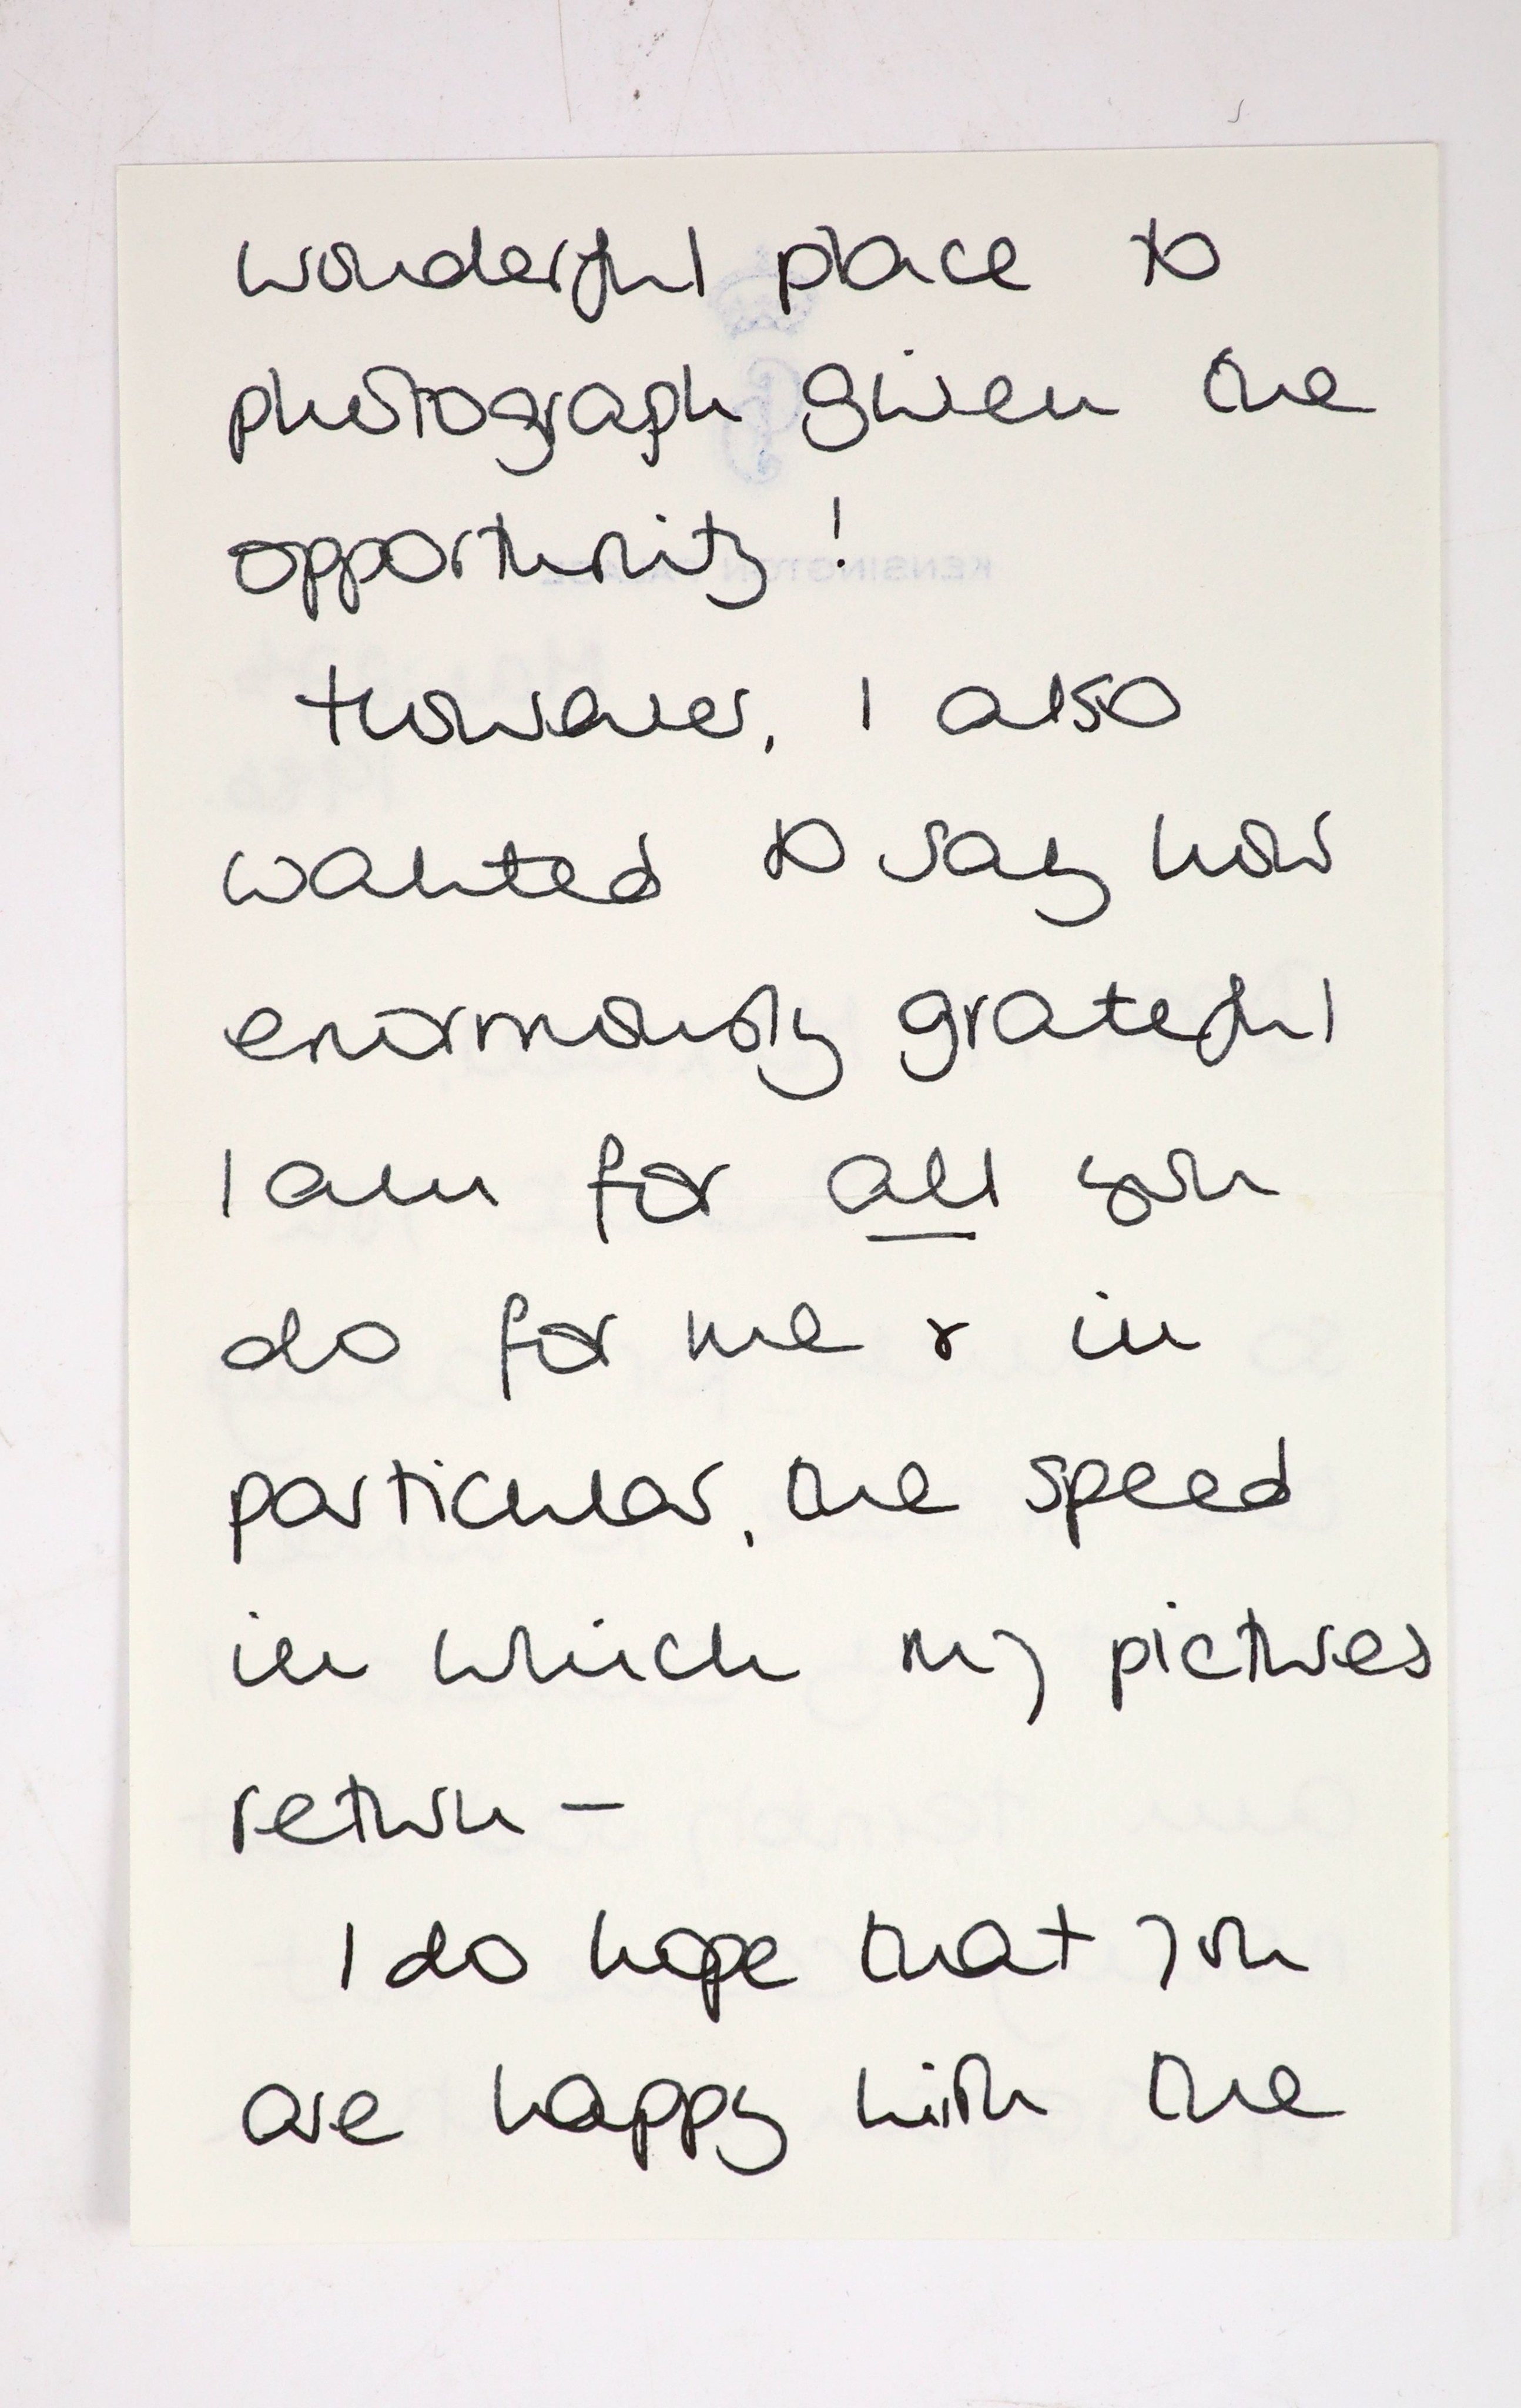 wonderful place to
photograph given the
opportunity!
However, I also
wanted to say how
enormously grateful
I am for all you
do for me & in
particular, the speed
in which my pictures
return –
I do hope that you
are happy with the
KENSINGTON PALACE